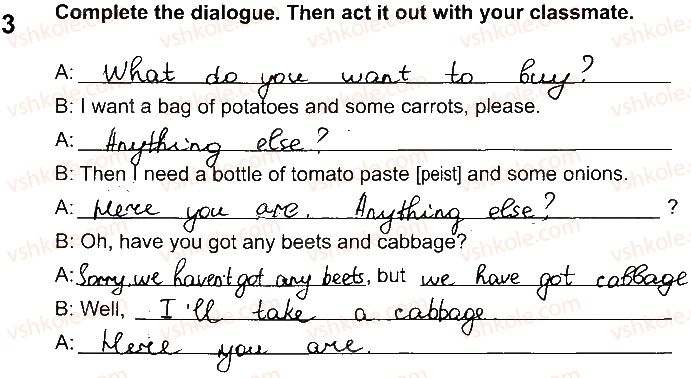 3 Complete the dialogue. Then act it out with your classmate.
A: What do you want to buy?
B: I want a bag of potatoes and some carrots, please.
A: Anything else?
B: Then I need a bottle of tomato paste [peist] and some onions.
A: Here you are. Anything else? ?
B: Oh, have you got any beets and cabbage?
A: Sorry, we haven't got any beets, but we have got cabbage
B: Well, I'll take a cabbage.
A: Here you are.